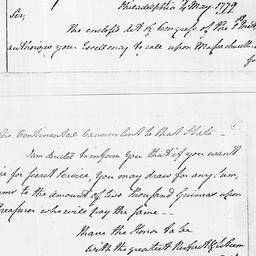 Philadelphia 4 May 1779
Sir,
The enclos'd Act of Congress of the
authorizes your Excellency to call upon Massachusetts
for
the Continental Cannon lent to that State.
I am directed to inform you that if you want
for secret Service, you may draw for any Sum,
to the amount of two thousand Guineas upon
Treasurer who will pay the same —
I have the Honor to be
With the greatest Respect & Esteem